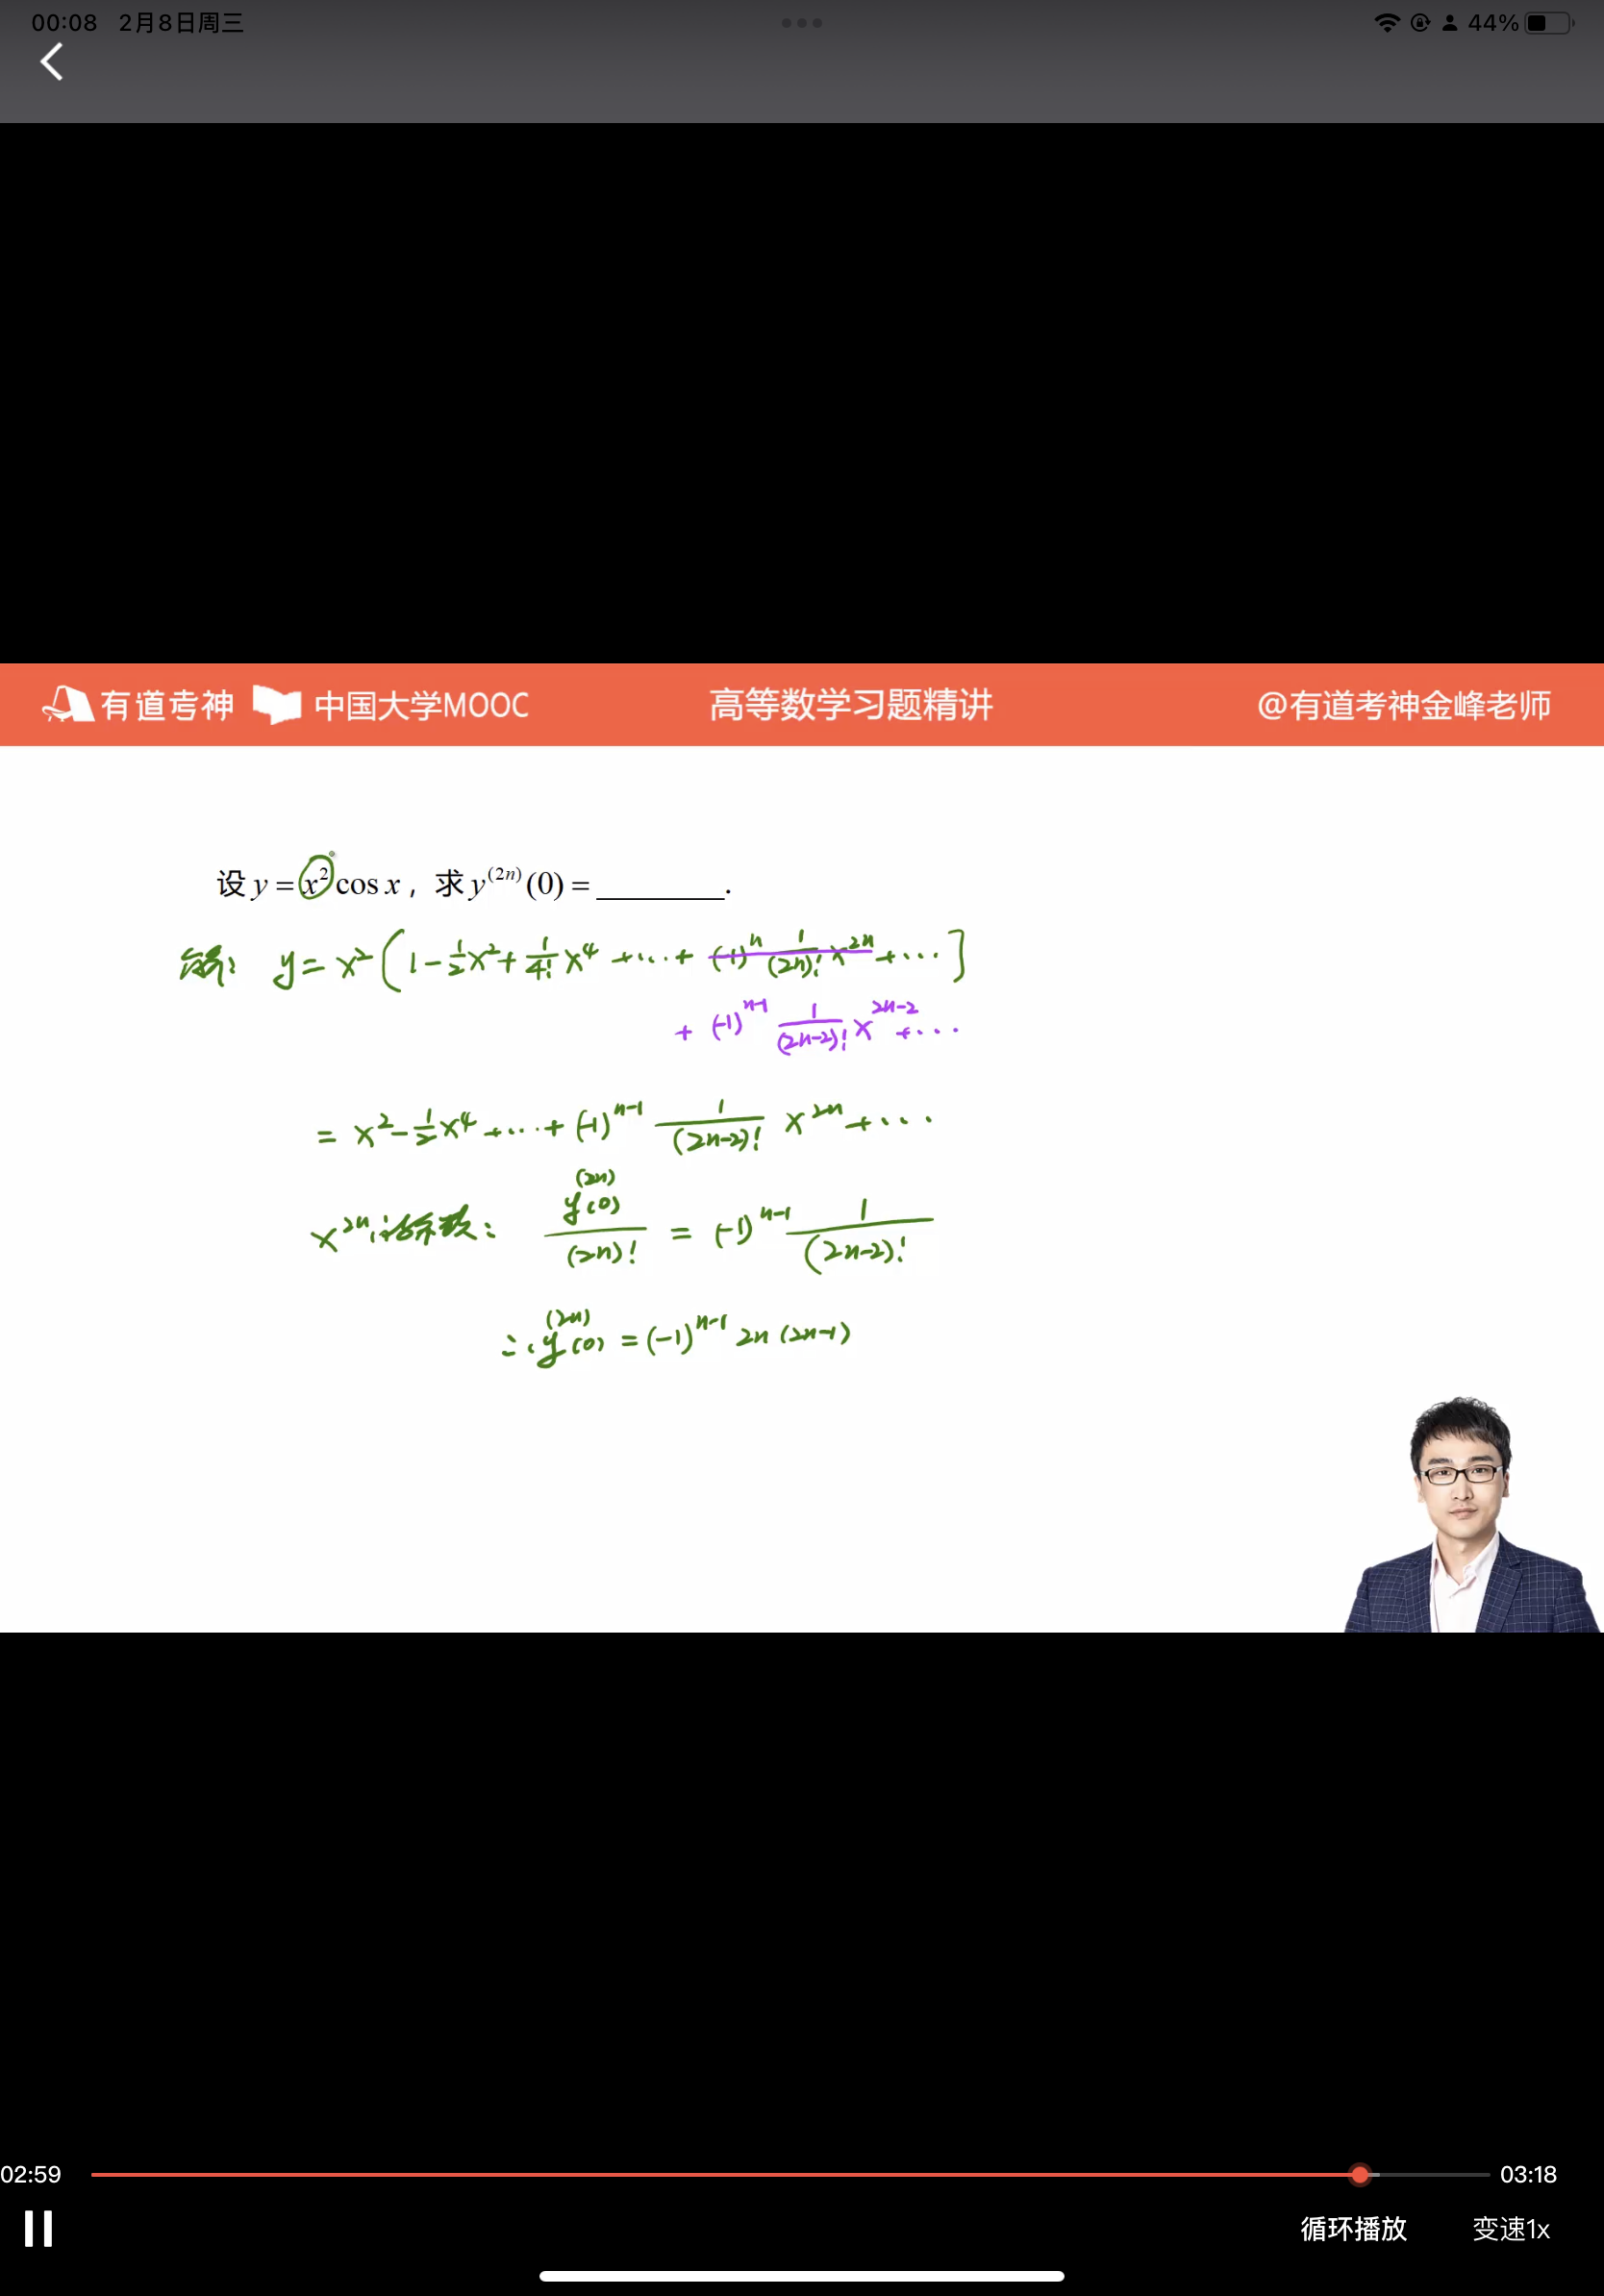 00:08 2月8日周三 44%
有道考神 中国大学MOOC 高等数学习题精讲 @有道考神金峰老师
设 y = x² cos x，求 y⁽²ⁿ⁾(0) = ________.
解: y = x² [1 - 1/2 x² + 1/4! x⁴ + ... + (-1)ⁿ 1/(2n)! x²ⁿ + ...]
+ (-1)ⁿ⁻¹ 1/(2n-2)! x²ⁿ⁻² + ...
= x² - 1/2 x⁴ + ... + (-1)ⁿ⁻¹ 1/(2n-2)! x²ⁿ + ...
x²ⁿ的系数: y⁽²ⁿ⁾(0)/(2n)! = (-1)ⁿ⁻¹ 1/(2n-2)!
∴ y⁽²ⁿ⁾(0) = (-1)ⁿ⁻¹ 2n(2n-1)
02:59 03:18
循环播放 变速1x